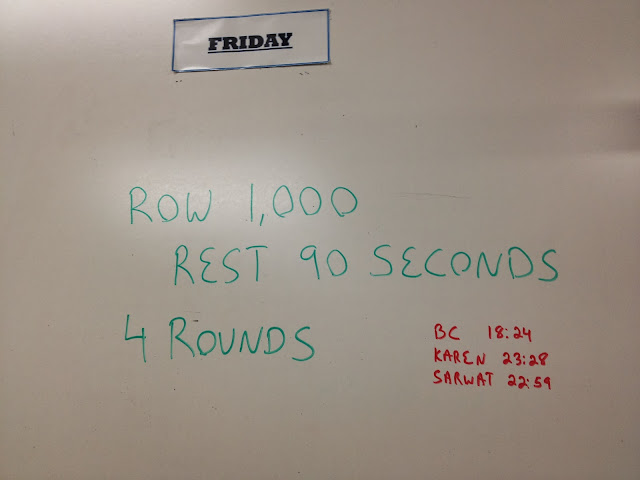 FRIDAY
ROW 1,000
REST 90 SECONDS
4 ROUNDS
BC 18:24
KAREN 23:28
SARWAT 22:59